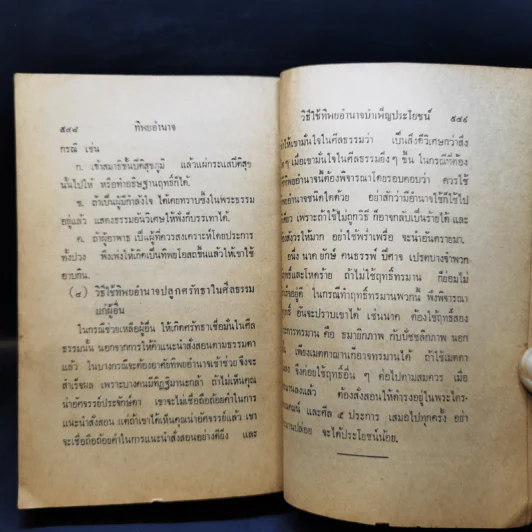 ๕๔๘ ทิพยอำนาจ
กรณี เช่น
ก. เข้าสมาธิขั้นปีติสุขภูมิ แล้วแผ่กระแสปีติสุข
นั้นไปให้ หรือทำอธิษฐานฤทธิ์ก็ได้.
ข. ถ้าเป็นผู้มีกำลังใจ ได้เคยทราบซึ้งในพระธรรม
อยู่แล้ว แสดงธรรมอันวิเศษให้ฟังก็บรรเทาได้.
ค. ถ้าผู้อาพาธ เป็นผู้ที่ควรสงเคราะห์โดยประการ
ทั้งปวง พึงเพ่งให้เกิดเป็นทิพยโอสถขึ้นแล้วให้เขาใช้
อาบกิน.
(๔) วิธีใช้ทิพยอำนาจปลูกศรัทธาในศีลธรรม
แก่ผู้อื่น
ในกรณีช่วยเหลือผู้อื่น ให้เกิดศรัทธาเชื่อมั่นในศีล
ธรรมนั้น นอกจากการให้คำแนะนำสั่งสอนตามธรรมดา
แล้ว ในบางกรณีจะต้องอาศัยทิพยอำนาจเข้าช่วย จึงจะ
สำเร็จผล เพราะบางคนมีทิฏฐิมานะกล้า ถ้าไม่เห็นคุณ
น่าอัศจรรย์ประจักษ์ตา เขาจะไม่เชื่อถือถ้อยคำในการ
แนะนำสั่งสอน แต่ถ้าเขาได้เห็นคุณน่าอัศจรรย์แล้ว เขา
จะเชื่อถือถ้อยคำในการแนะนำสั่งสอนอย่างดียิ่ง และ
วิธีใช้ทิพยอำนาจบำเพ็ญประโยชน์ ๕๔๙
ให้เขามั่นใจในศีลธรรมว่า เป็นสิ่งดีวิเศษกว่าสิ่ง
ใด ๆ เมื่อเขามั่นใจในศีลธรรมยิ่ง ๆ ขึ้น ในกรณีที่ต้อง
ทิพยอำนาจนี้ต้องพิจารณาโดยรอบคอบว่า ควรใช้
ทิพยอำนาจชนิดใดด้วย อย่าสักว่ามีอำนาจใช้ก็ใช้ไป
เดียว เพราะถ้าใช้ไม่ถูกวิธี ก็อาจกลับเป็นร้ายได้ และ
ระวังให้มาก อย่าใช้พร่ำเพรื่อ จะนำอันตรายมา.
อนึ่ง นาค ยักษ์ คนธรรพ์ ปีศาจ เปรตบางจำพวก
ฤทธิ์และโหดร้าย ถ้าไม่ใช้ฤทธิ์ทรมาน ก็ย่อมไม่
อยู่ดี ในกรณีทำฤทธิ์ทรมานพวกนี้ พึงพิจารณา
อันจะปราบเขาได้ เช่นนาค ต้องใช้ฤทธิ์สอง
การทรมาน คือ ธมายิกภาพ กับปัชชลิกภาพ นอก
เพียงเมตตาฌานก็อาจทรมานได้ ถ้าใช้เมตตา
จึงค่อยใช้ฤทธิ์อื่น ๆ ต่อไปตามสมควร เมื่อ
แล้ว ต้องสั่งสอนให้ดำรงอยู่ในพระไตร-
และศีล ๕ ประการ เสมอไปทุกครั้ง อย่า
ปล่อย จะได้ประโยชน์น้อย.